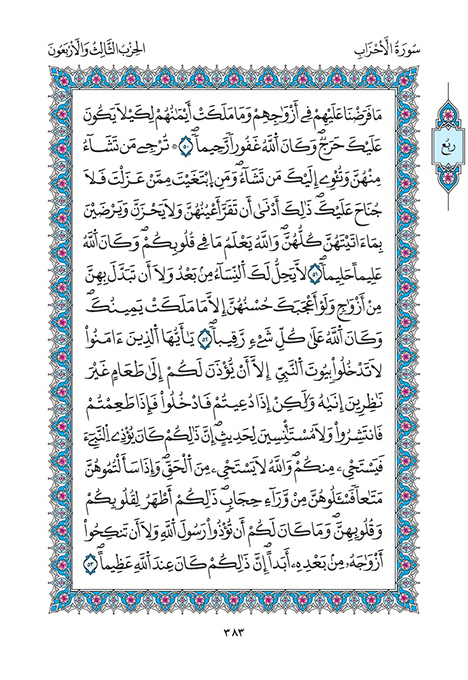 سُورَةُ الْأَحْزَابِ
الحِزْبُ الثَّالِثُ وَالْأَرْبَعُونَ
رُبُع
مَا فَرَضْنَا عَلَيْهِمْ فِے أَزْوَٰجِهِمْ وَمَا مَلَكَتَ اَيْمَٰنُهُمْ لِكَيْلَا يَكُونَ
عَلَيْكَ حَرَجٌۖ وَكَانَ اَ۬للَّهُ غَفُوراٗ رَّحِيماٗۖ ٥٠ ۞ تُرْجِے مَن تَشَآءُ
مِنْهُنَّ وَتُـْٔوِےٓ إِلَيْكَ مَن تَشَآءُۖ وَمَنِ اِ۪بْتَغَيْتَ مِمَّنْ عَزَلْتَ فَلَا
جُنَاحَ عَلَيْكَۖ ذَٰلِكَ أَدْنَىٰٓ أَن تَقَرَّ أَعْيُنُهُنَّ وَلَا يَحْزَنَّ وَيَرْضَيْنَ
بِمَآ ءَاتَيْتَهُنَّ كُلُّهُنَّۖ وَاللَّهُ يَعْلَمُ مَا فِے قُلُوبِكُمْۖ وَكَانَ اَ۬للَّهُ
عَلِيماً حَلِيماٗۖ ٥١ لَّا يَحِلُّ لَكَ اَ۬لنِّسَآءُ مِنۢ بَعْدُ وَلَآ أَن تَبَدَّلَ بِهِنَّ
مِنَ اَزْوَٰجٖ وَلَوَ اَعْجَبَكَ حُسْنُهُنَّ إِلَّا مَا مَلَكَتْ يَمِينُكَۖ
وَكَانَ اَ۬للَّهُ عَلَىٰ كُلِّ شَےْءٖ رَّقِيباٗۖ ٥٢ يَٰٓأَيُّهَا اَ۬لذِينَ ءَامَنُواْ
لَا تَدْخُلُواْ بُيُوتَ اَ۬لنَّبِےٓءِ اِ۪لَّآ أَنْ يُّؤْذَنَ لَكُمُۥٓ إِلَىٰ طَعَامٍ غَيْرَ
نَٰظِرِينَ إِنَىٰهُ وَلَٰكِنِ اِذَا دُعِيتُمْ فَادْخُلُواْ فَإِذَا طَعِمْتُمْ
فَانتَشِرُواْ وَلَا مُسْتَـْٔنِسِينَ لِحَدِيثٍۖ اِنَّ ذَٰلِكُمْ كَانَ يُؤْذِے اِ۬لنَّبِےٓءَ
فَيَسْتَحْيِۦ مِنكُمْۖ وَاللَّهُ لَا يَسْتَحْيِۦ مِنَ اَ۬لْحَقِّۖ وَإِذَا سَأَلْتُمُوهُنَّ
مَتَٰعاٗ فَسْـَٔلُوهُنَّ مِنْ وَّرَآءِ حِجَابٖۖ ذَٰلِكُمُۥٓ أَطْهَرُ لِقُلُوبِكُمْ
وَقُلُوبِهِنَّۖ وَمَا كَانَ لَكُمُۥٓ أَن تُؤْذُواْ رَسُولَ اَ۬للَّهِ وَلَآ أَن تَنكِحُوٓاْ
أَزْوَٰجَهُۥ مِنۢ بَعْدِهِۦٓ أَبَداًۖ اِنَّ ذَٰلِكُمْ كَانَ عِندَ اَ۬للَّهِ عَظِيماًۖ ٥٣
٣٨٣